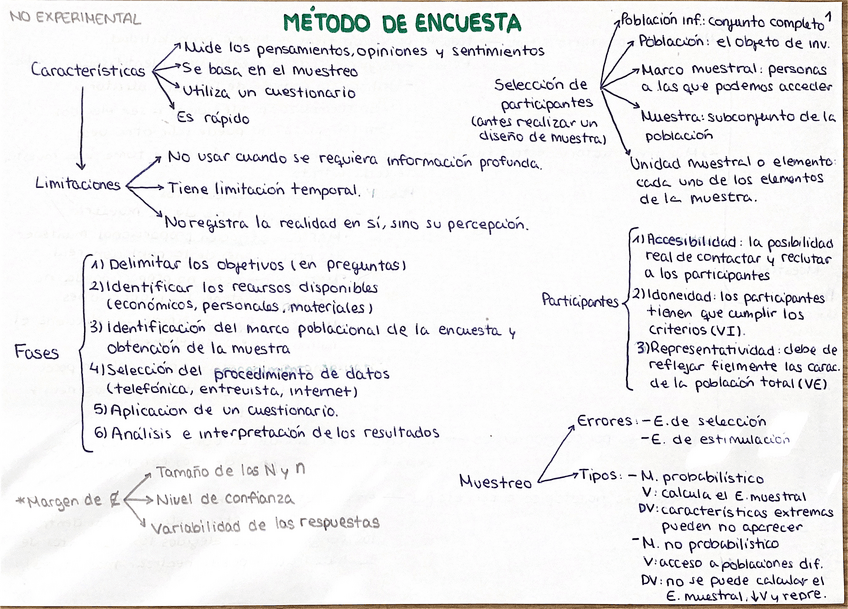 NO EXPERIMENTAL
MÉTODO DE ENCUESTA
1
Características
Mide los pensamientos, opiniones y sentimientos
Se basa en el muestreo
Utiliza un cuestionario
Es rápido
Limitaciones
No usar cuando se requiera información profunda.
Tiene limitación temporal.
No registra la realidad en sí, sino su percepción.
Selección de
participantes
(antes realizar un
diseño de muestra)
Población inf.: conjunto completo
Población: el objeto de inv.
Marco muestral: personas
a las que podemos acceder
Muestra: subconjunto de la
población
Unidad muestral o elemento:
cada uno de los elementos
de la muestra.
Fases
1) Delimitar los objetivos (en preguntas)
2) Identificar los recursos disponibles
(económicos, personales, materiales)
3) Identificación del marco poblacional de la encuesta y
obtención de la muestra
4) Selección del procedimiento de datos
(telefónica, entrevista, internet)
5) Aplicacion de un cuestionario.
6) Análisis e interpretación de los resultados
Participantes
1) Accesibilidad: la posibilidad
real de contactar y reclutar
a los participantes
2) Idoneidad: los participantes
tienen que cumplir los
criterios (VI).
3) Representatividad: debe de
reflejar fielmente las carac.
de la población total (VE)
*Margen de E
Tamaño de las N y n
Nivel de confianza
Variabilidad de las respuestas
Muestreo
Errores: - E. de selección
- E. de estimulación
Tipos: - M. probabilístico
V: calcula el E. muestral
DV: características extremas
pueden no aparecer
- M. no probabilístico
V: acceso a poblaciones dif.
DV: no se puede calcular el
E. muestral, ↓V y repre.